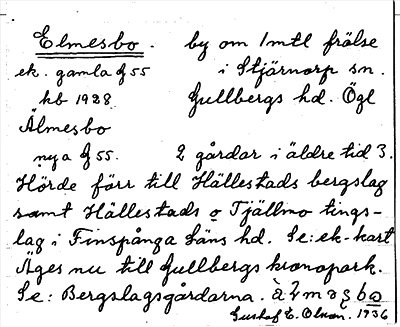 Elmesbo. by om 1 mtl frälse
ek. gamla J 55 i Stjärnorp sn.
kb 1928 Gullbergs hd. Ögl
Älmesbo
nya J 55. 2 gårdar i äldre tid 3.
Hörde förr till Hällestads bergslag
samt Hällestads o Tjällmo tings-
lag i Finspånga läns hd. Se: ek-kart
Äges nu till Gullbergs kronopark.
Se: Bergslagsgårdarna.
Gustaf E. Olsson. 1936